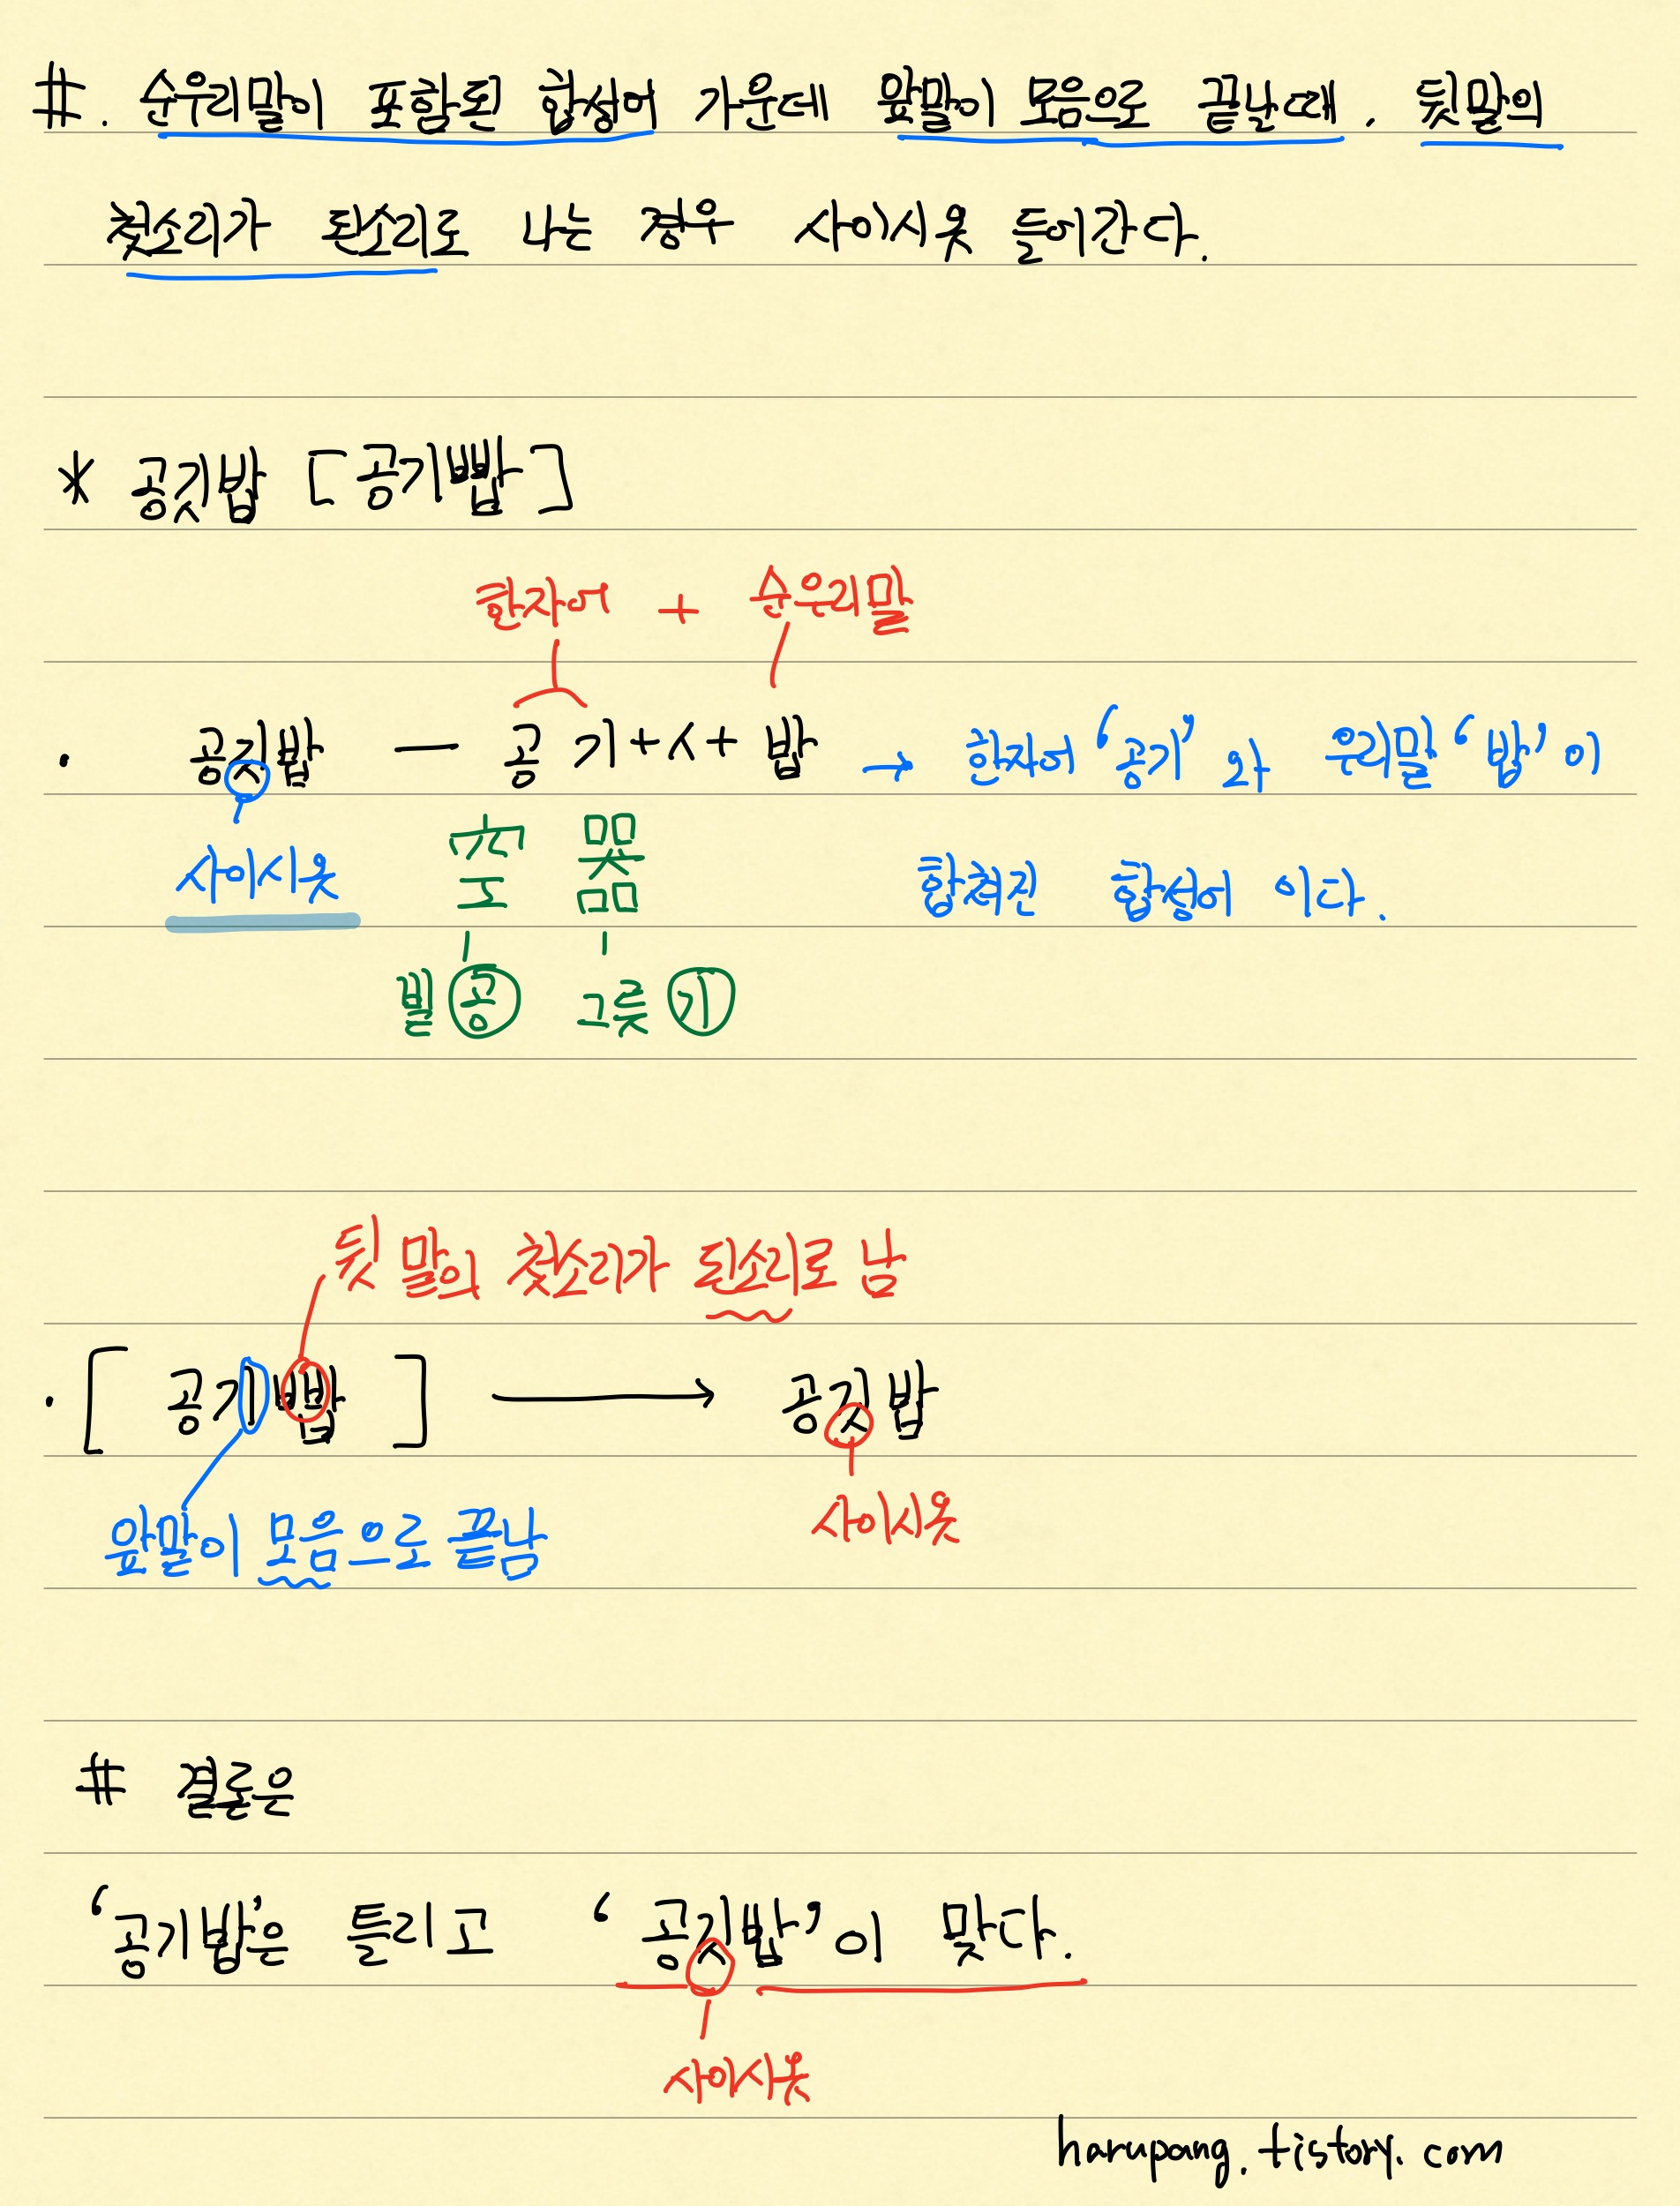 #. 순우리말이 포함된 합성어 가운데 앞말이 모음으로 끝날때, 뒷말의
첫소리가 된소리로 나는 경우 사이시옷 들어간다.
* 공깃밥 [공기빱]
한자어 + 순우리말
· 공깃밥 — 공기+ㅅ+밥 → 한자어 '공기'와 우리말 '밥'이
사이시옷 空 器 합쳐진 합성어 이다.
빌 공 그릇 기
뒷말의 첫소리가 된소리로 남
·[공기빱] → 공깃밥
앞말이 모음으로 끝남 사이시옷
# 결론은
'공기밥'은 틀리고 '공깃밥'이 맞다.
사이시옷
harupang.tistory.com